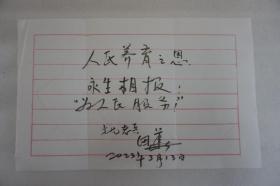 人民养育之恩.
永生相报:
"为人民服务"
田华
2023年3月13日